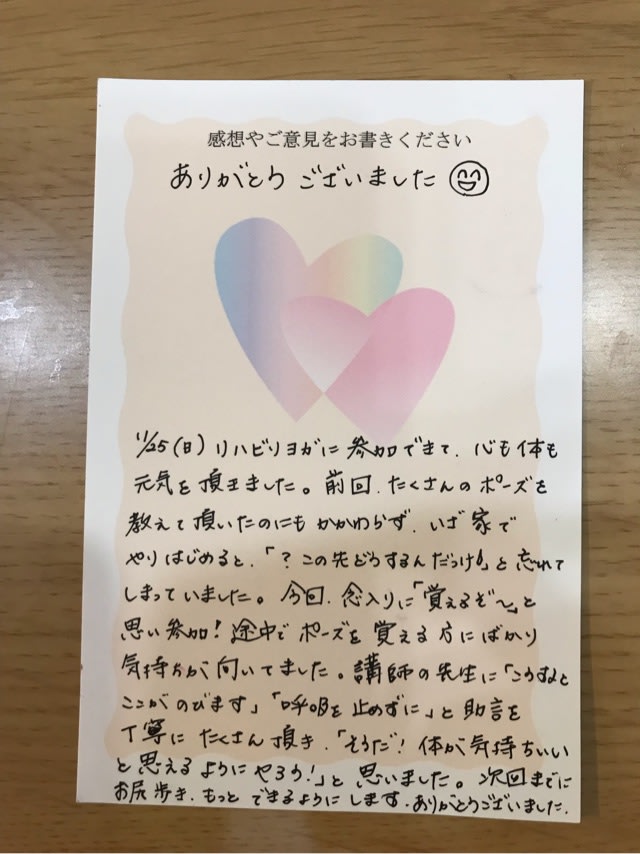 感想やご意見をお書きください
ありがとうございました
11/25(日)リハビリヨガに参加できて、心も体も
元気を頂きました。前回、たくさんのポーズを
教えて頂いたのにもかかわらず、いざ家で
やりはじめると、「?この先どうするんだっけ!」と忘れて
しまっていました。今回、念入りに「覚えるぞ〜」と
思い参加!途中でポーズを覚える方にばかり
気持ちが向いてました。講師の先生に「こうすると
ここがのびます」「呼吸を止めずに」と助言を
丁寧にたくさん頂き、「そうだ!体が気持ちいい
と思えるようにやろう!」と思いました。次回までに
お尻歩き、もっとできるようにします。ありがとうございました。